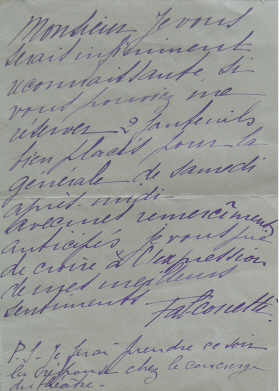 Monsieur, Je vous
serais infiniment
reconnaissante, si
vous pouviez me
réserver 2 fauteuils
bien placés pour la
générale de samedi
après-midi
Avec mes remerciements
anticipés, je vous prie
de croire à l'expression
de mes meilleurs
sentiments.
Falconetti
P.S. Je ferai prendre ce soir
la réponse chez le concierge
du théâtre.